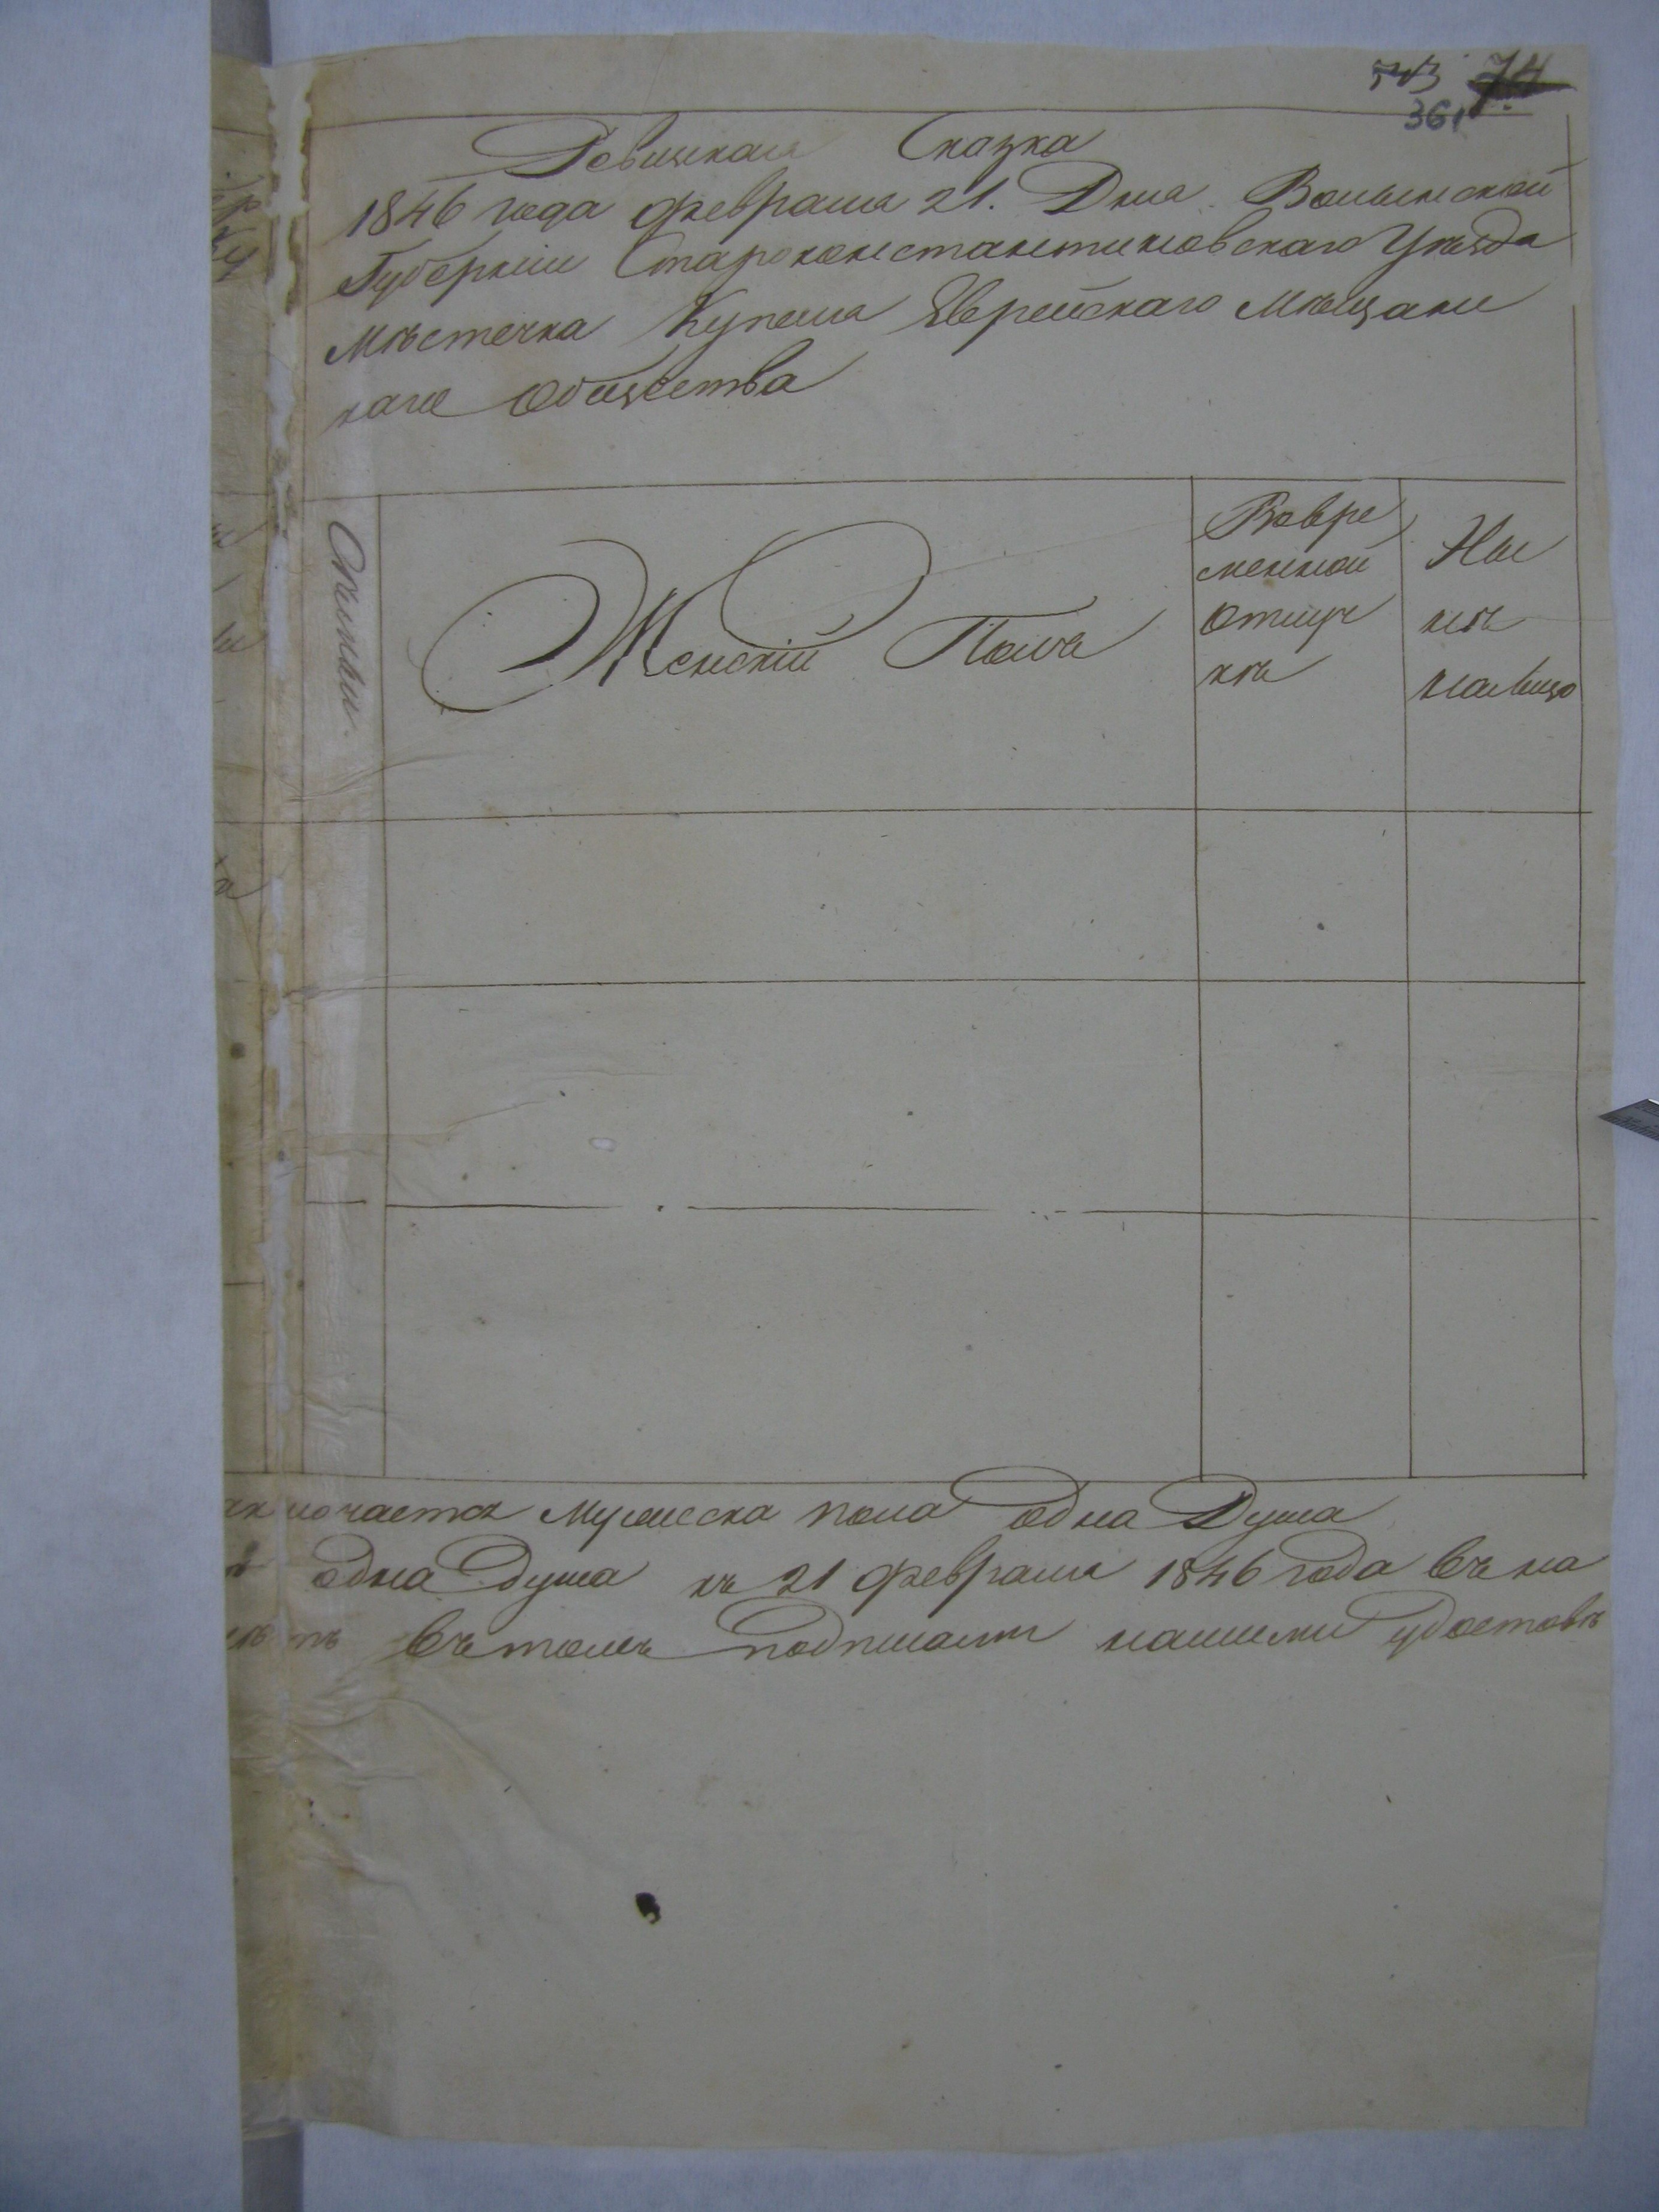 543 74
361
Ревизская Сказка
1846 года февраля 21. Дня Волынской
Губернии Староконстантиновскаго Уѣзда
Мѣстечка Купеля Еврейскаго Мѣщани
каго Общества
Семьи.
Женскій Полъ
Вовре
менной
Отлуч
кѣ
Ны
нѣ
на лицо
ключается Мужеска пола одна Душа
одна душа къ 21 февраля 1846 года въ на
въ томъ подписами нашими удостовѣ